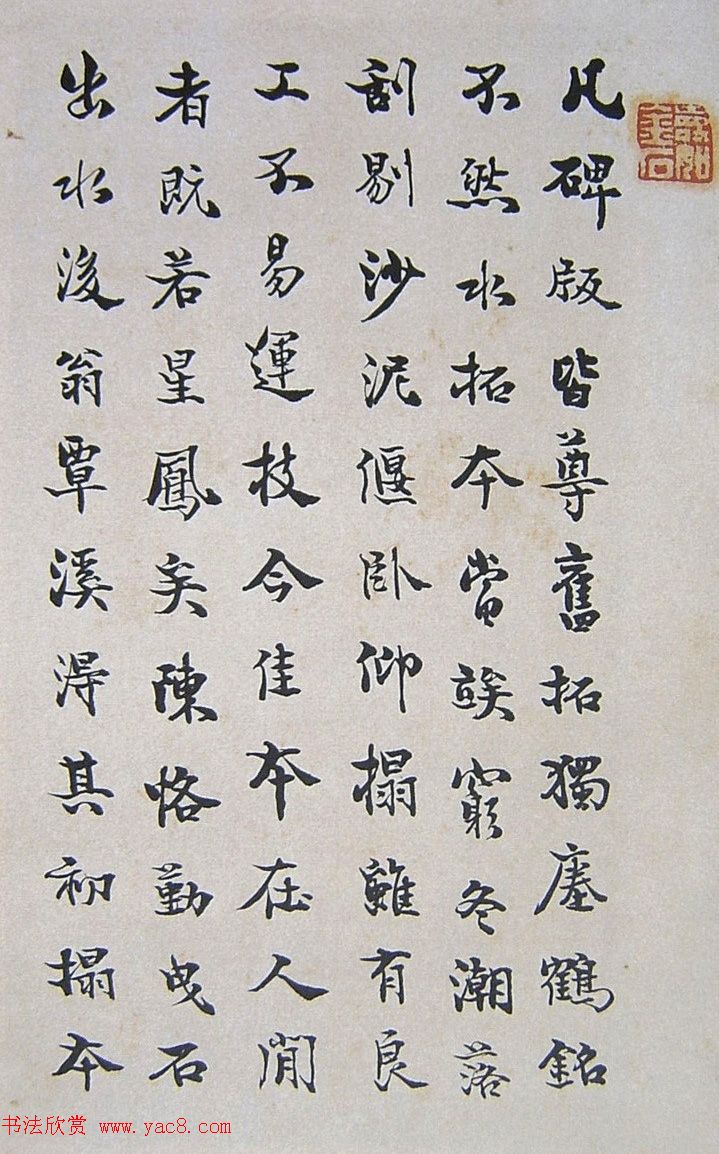 凡碑版皆尊舊拓獨瘞鶴銘
不然水拓本當竢窮冬潮落
刮剔沙泥偃卧仰搨雖有良
工不易運技今佳本在人間
者既若星鳳矣陳恪勤曳石
出水後翁覃溪得其初搨本
书法欣赏 www.yac8.com